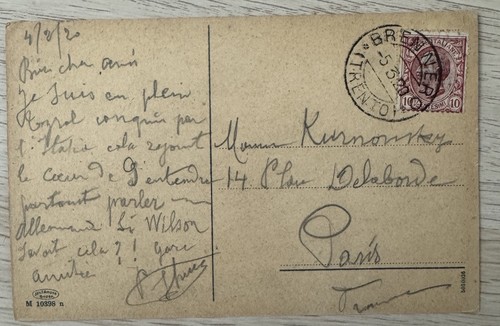 4/3/20
Bien cher ami
Je suis en plein
Tyrol conquis par
l'Italie cela rejouit
le coeur de d'entendre
partout parler
allemand Si Wilson
savait cela ?!
amitiés
M 10398 n
BRENNERO
-5.3.20
(TRENTO)
10 10
Kurnonsky
14 Place Delaborde
Paris
France